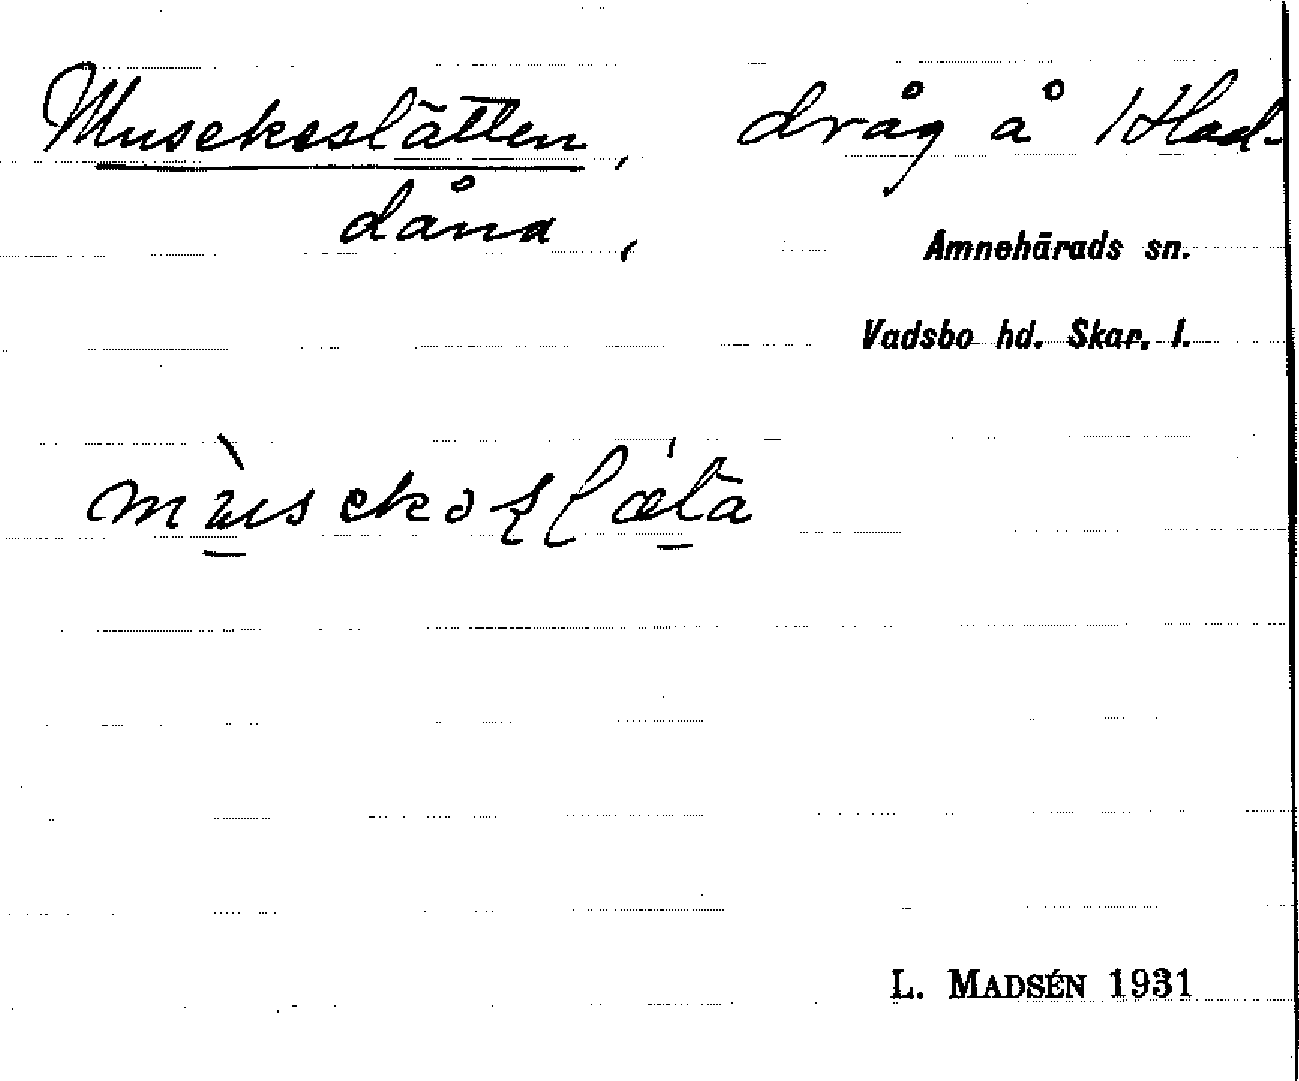 Musekeslätten, dråg å 1 Had-
dåna,
Amnehärads sn.
Vadsbo hd. Skar. l.
L. MADSÉN 1931